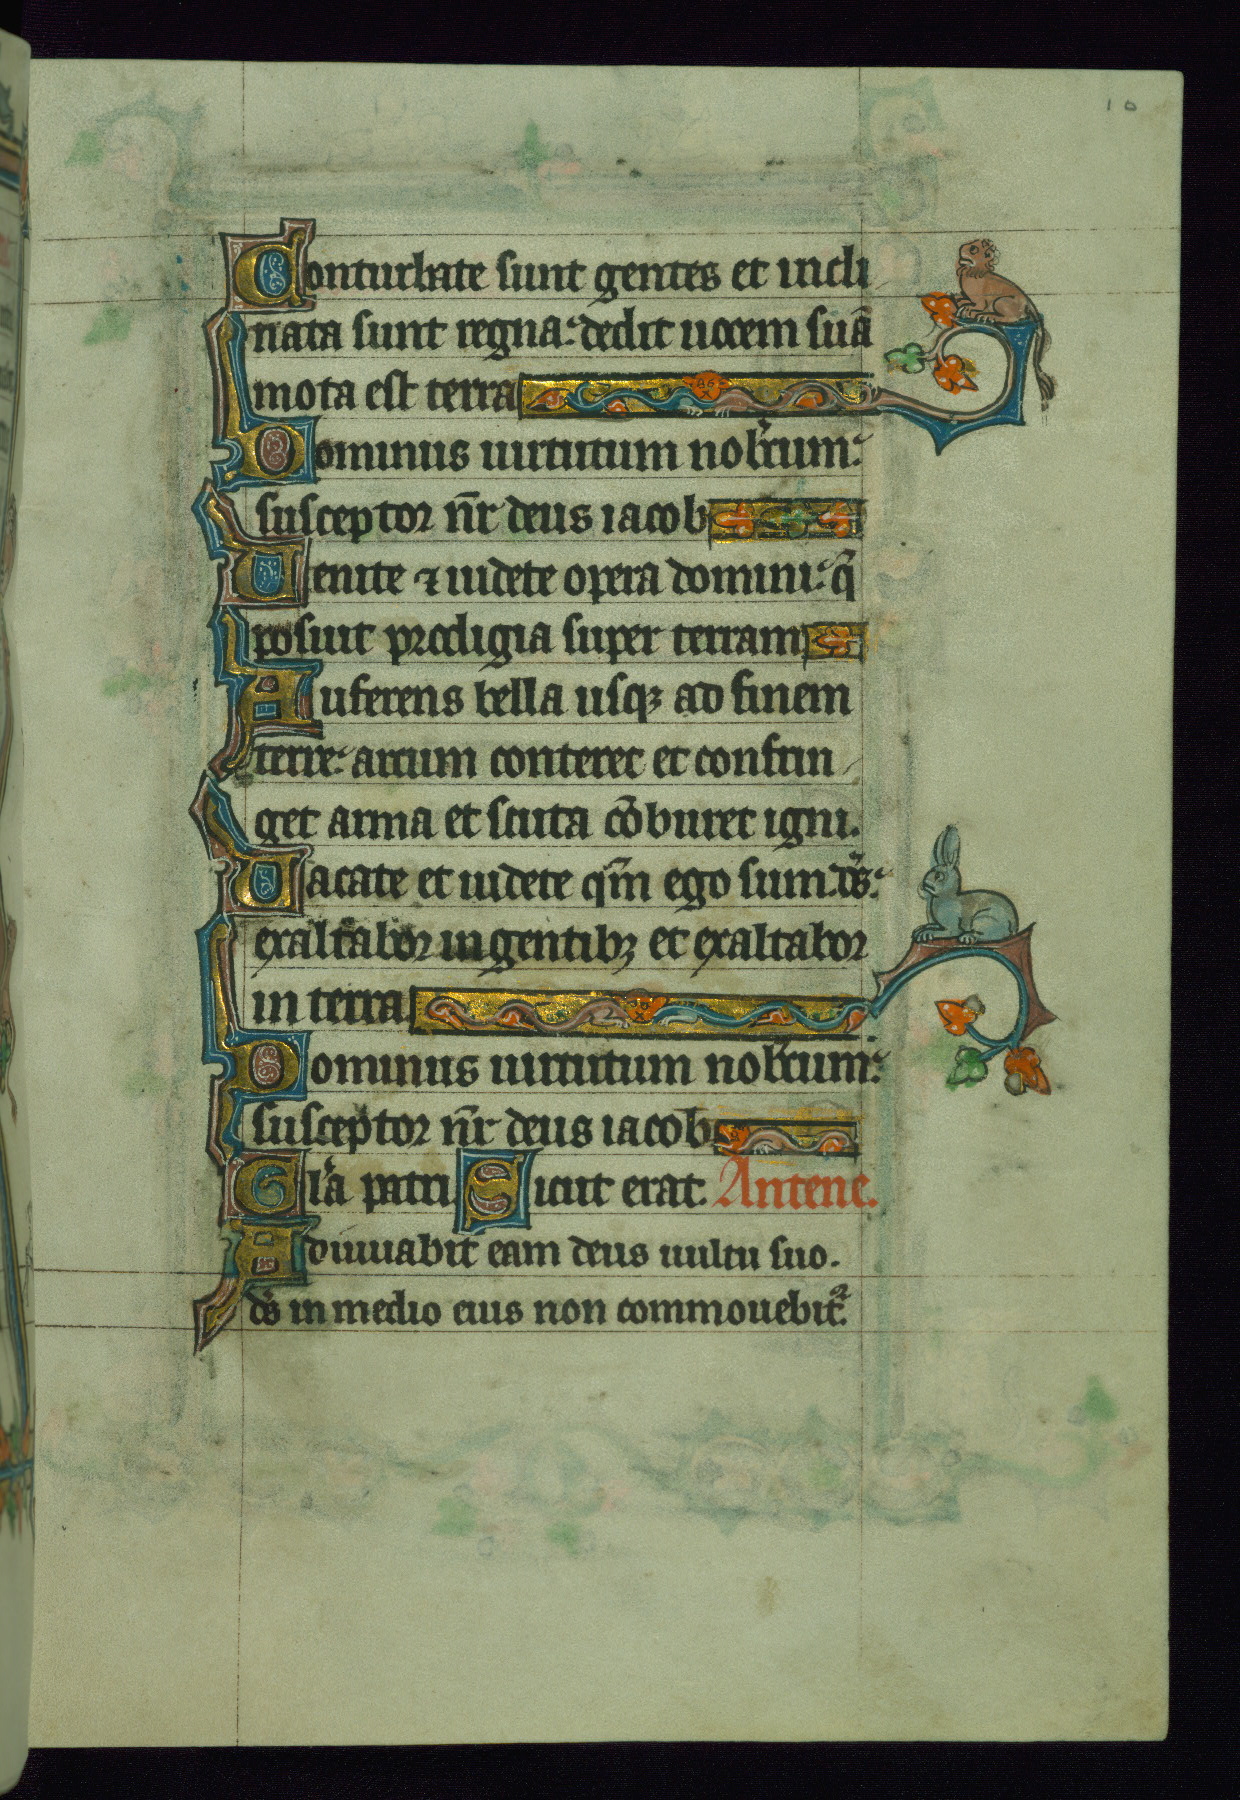 10
Conturbate sunt gentes et incli
nata sunt regna: dedit uocem suā
mota est terra
Dominus uirtutum nobiscum:
susceptor nr̄ deus iacob
Uenite ⁊ uidete opera domini: q̄
posuit prodigia super terram
Auferens bella usqꝫ ad finem
terre: arcum conteret et confrin
get arma et scuta cōburet igni.
Uacate et uidete qm̄ ego sum ds̄:
exaltabor in gentibꝫ et exaltabor
in terra
Dominus uirtutum nobiscum:
susceptor nr̄ deus iacob
Glā patri Sicut erat. Antene.
Adiuuabit eam deus uultu suo.
ds̄ in medio eius non commouebit᷑.